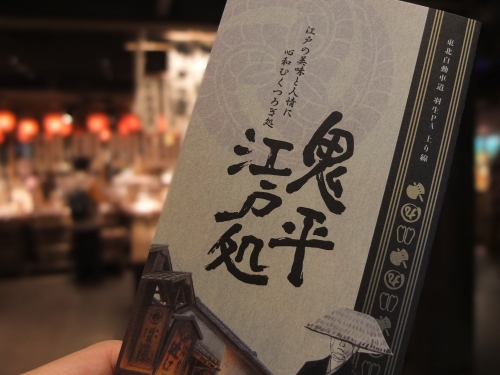 東北自動車道 羽生PA 上り線
江戸の美味と人情に
心和むくつろぎ処
鬼平
江戸処